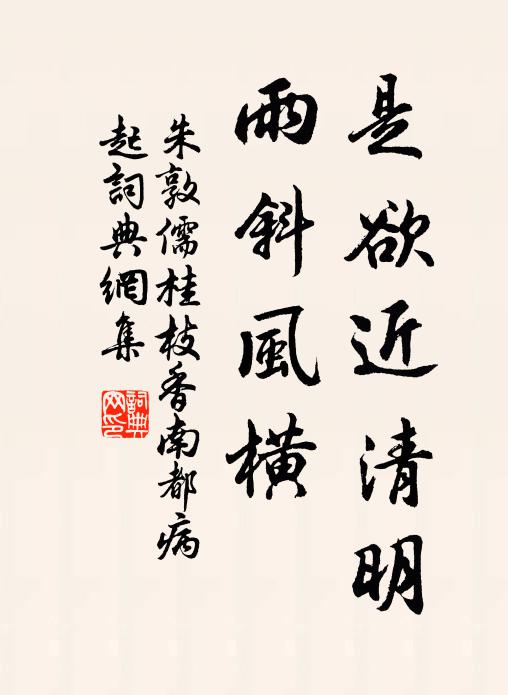 是欲近清明
雨斜風橫
朱敦儒桂枝香南都病
起詞典網集
詞典网印